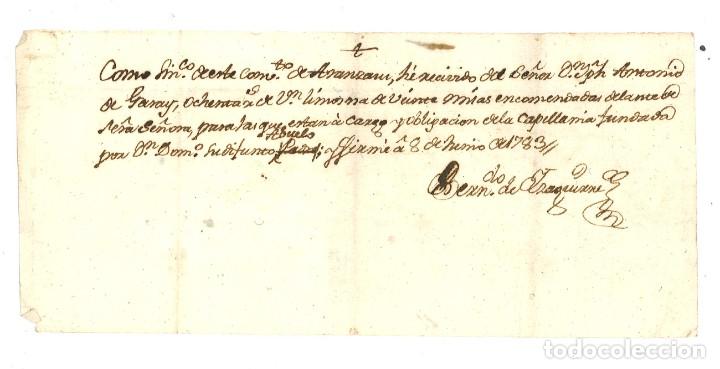 Como Sin.co de este conv.to de Aranzazu, hé recivido del Señor D.n Jph Antonio
de Garay, ochenta r.s de V.n limosna de veinte misas encomendadas delante de
Señora, para las que estan à cargo y obligacion de la Capellania fundada
Abuelo
por D.n Dom.o su difunto y firmé à 8 de Junio de 1783//
Bern.do de
todocoleccion
todocoleccion.net